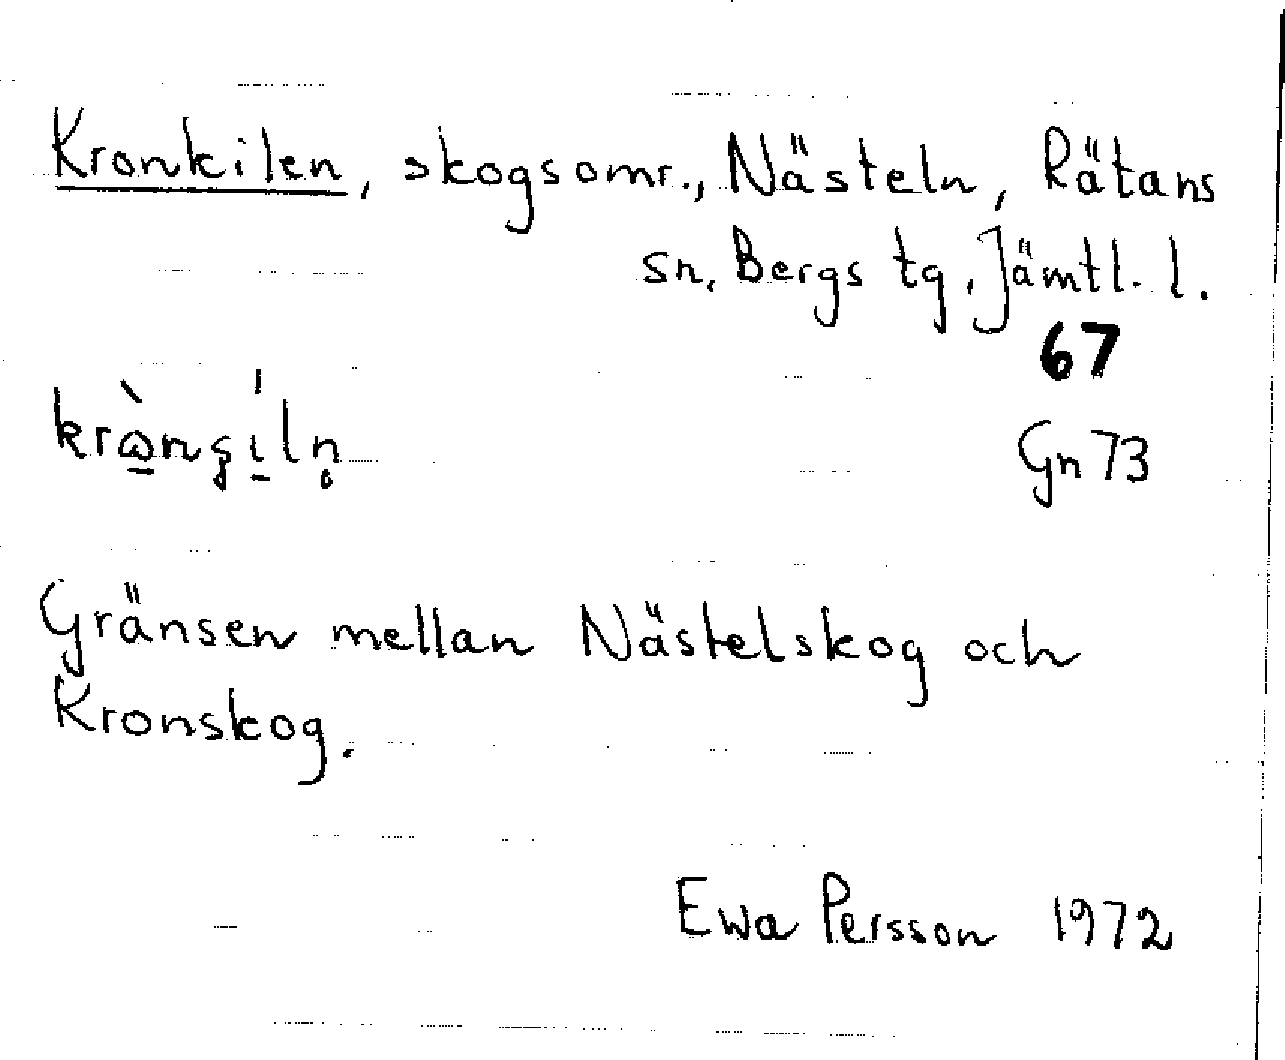 Kronkilen, skogsomr., Nästeln, Rätans
sn, Bergs tg, Jämtl. l.
67
krɷ̠̀nʂi̠̍ln̥
Gn 73
Gränsen mellan Nästelskog och
Kronskog.
Ewa Persson 1972